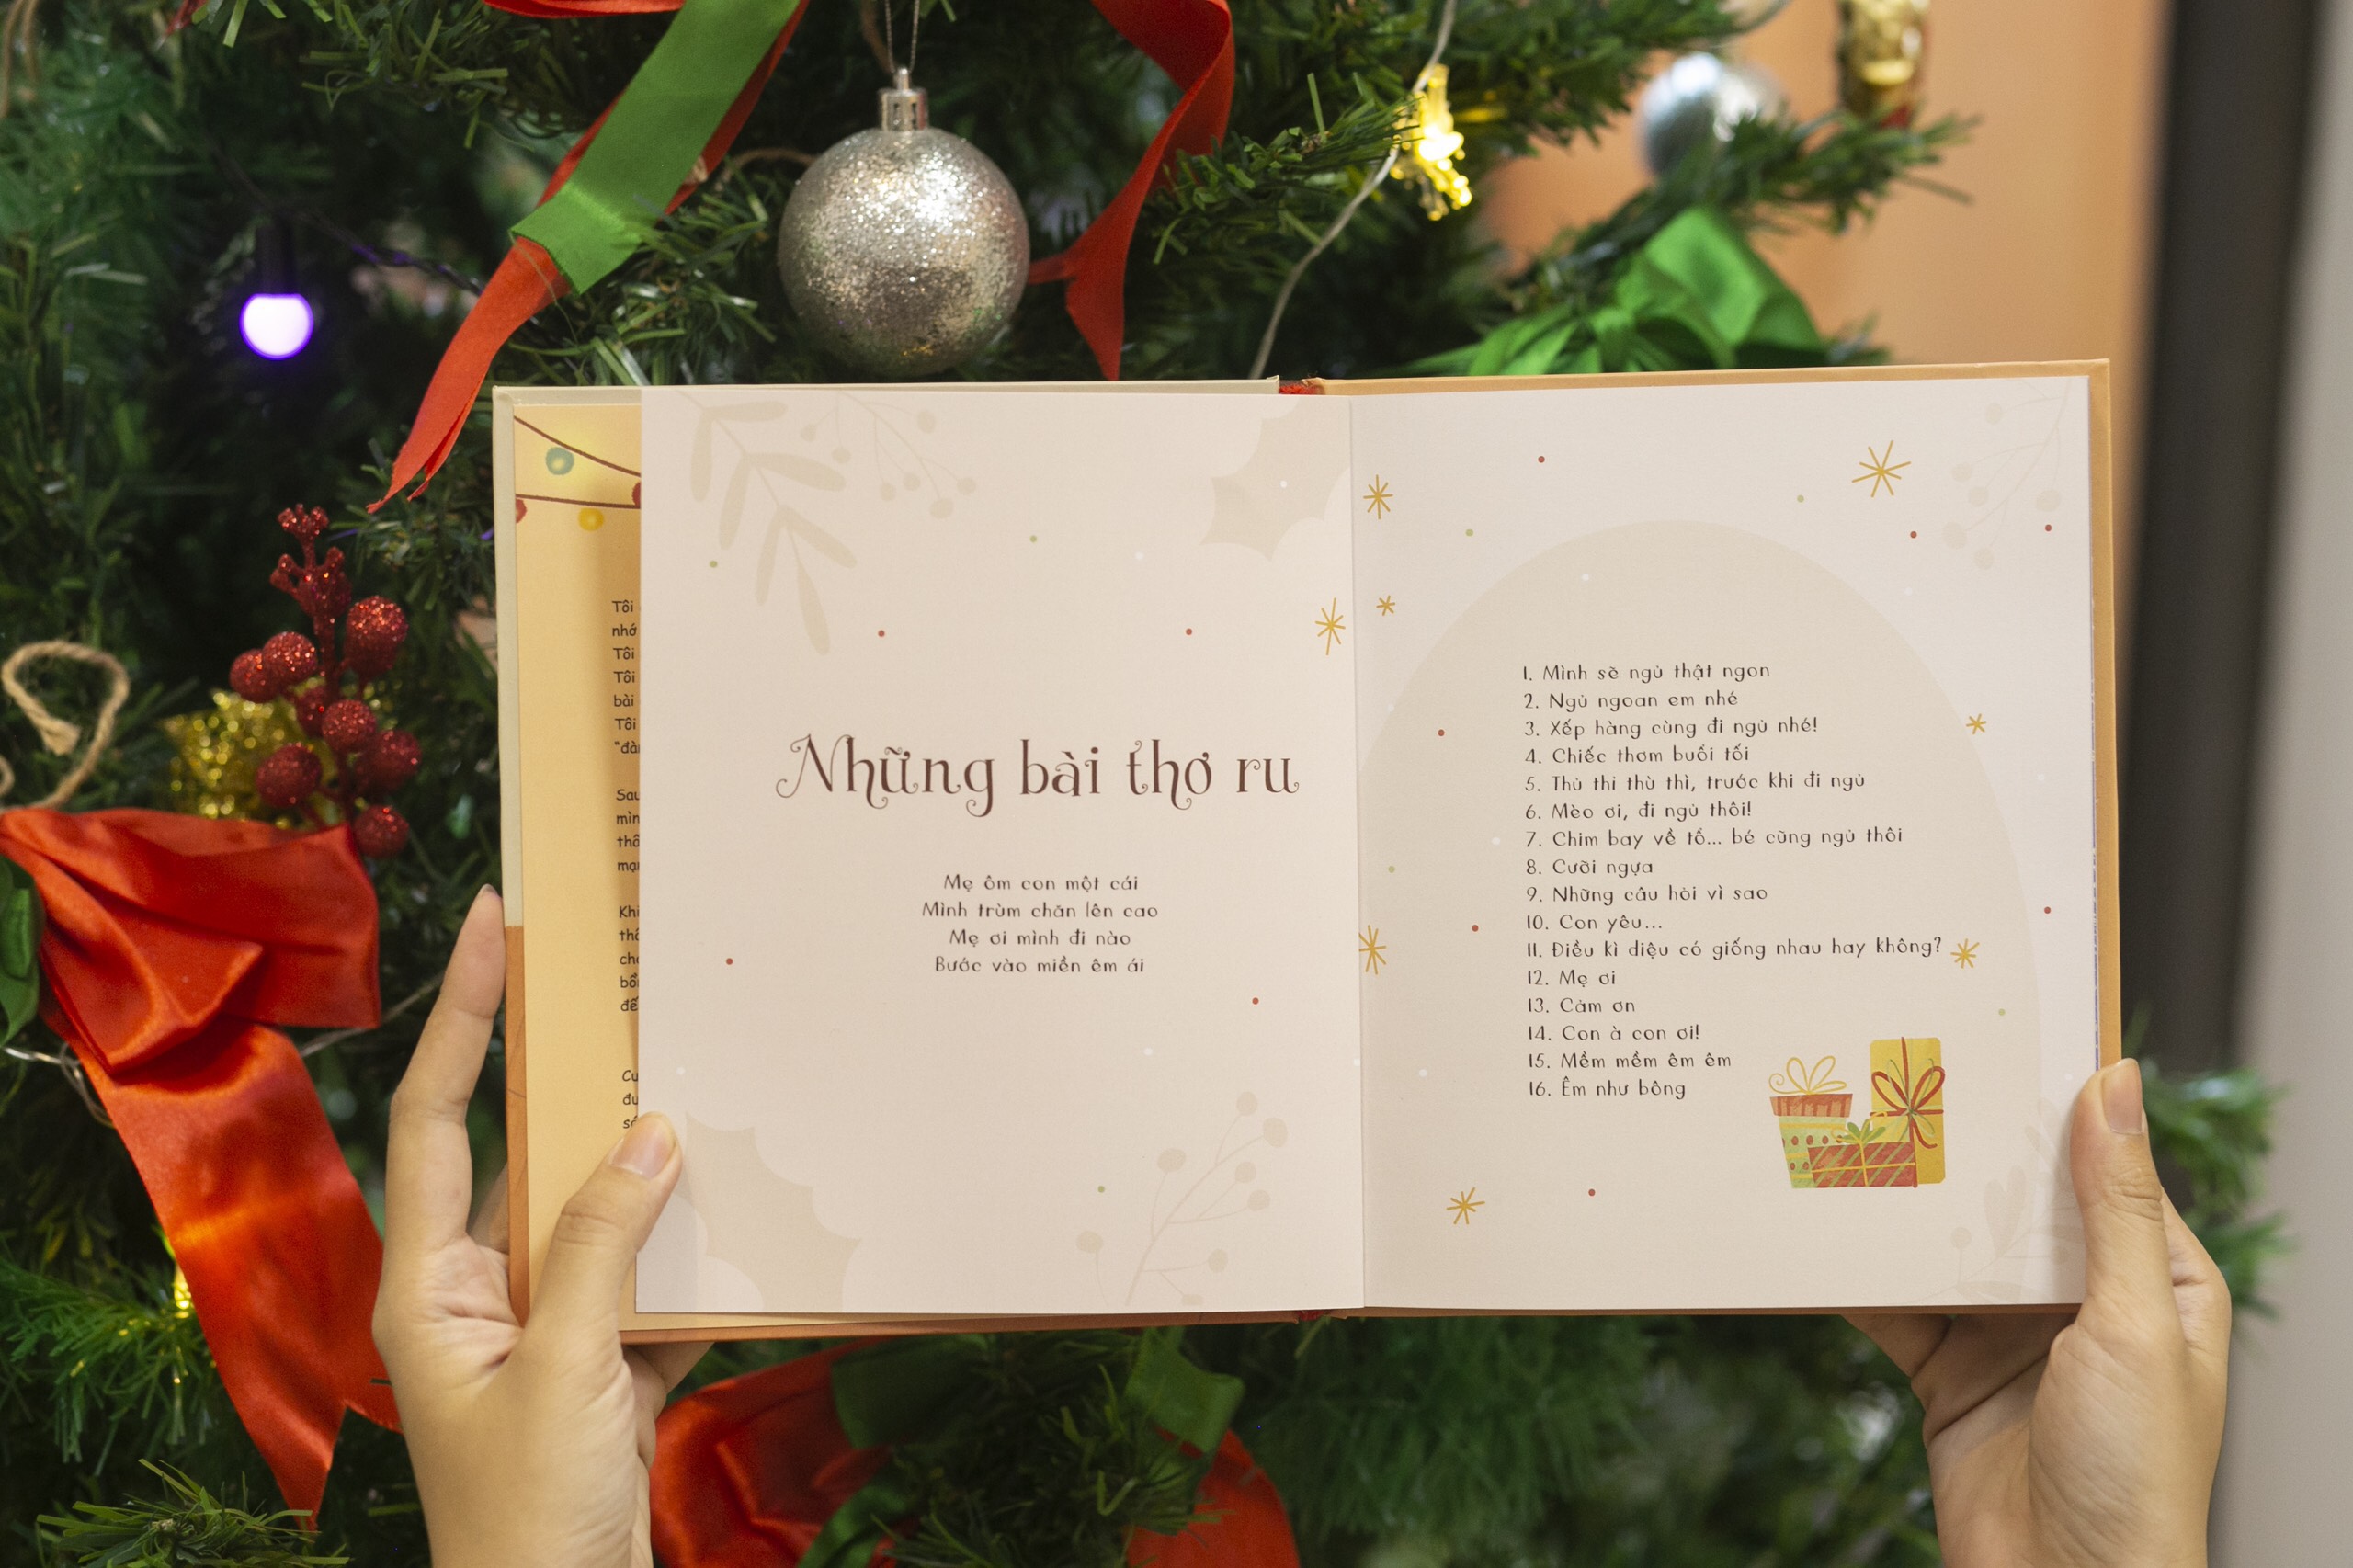 Tôi
nhớ
Tôi
Tôi
bài
Tôi
Sau
Khi
Những bài thơ ru
Mẹ ôm con một cái
Mình trùm chăn lên cao
Mẹ ơi mình đi nào
Bước vào miền êm ái
1. Mình sẽ ngủ thật ngon
2. Ngủ ngoan em nhé
3. Xếp hàng cùng đi ngủ nhé!
4. Chiếc thơm buổi tối
5. Thủ thỉ thù thì, trước khi đi ngủ
6. Mèo ơi, đi ngủ thôi!
7. Chim bay về tổ... bé cũng ngủ thôi
8. Cưỡi ngựa
9. Những câu hỏi vì sao
10. Con yêu...
11. Điều kì diệu có giống nhau hay không?
12. Mẹ ơi
13. Cảm ơn
14. Con à con ơi!
15. Mềm mềm êm êm
16. Êm như bông